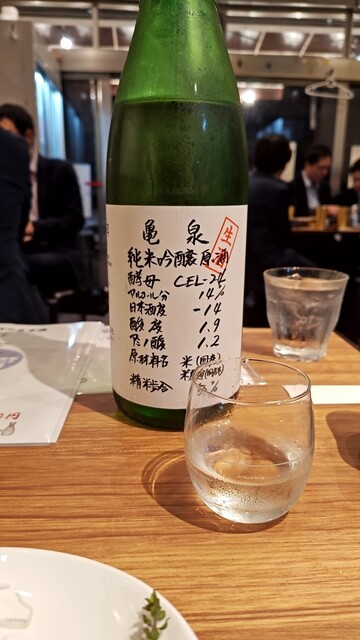 亀泉
生酒
純米吟醸原酒
酵母 CEL-24
アルコール分 14%
日本酒度 -14
酸度 1.9
アミノ酸 1.2
原材料名 米(国産)
精米歩合
円